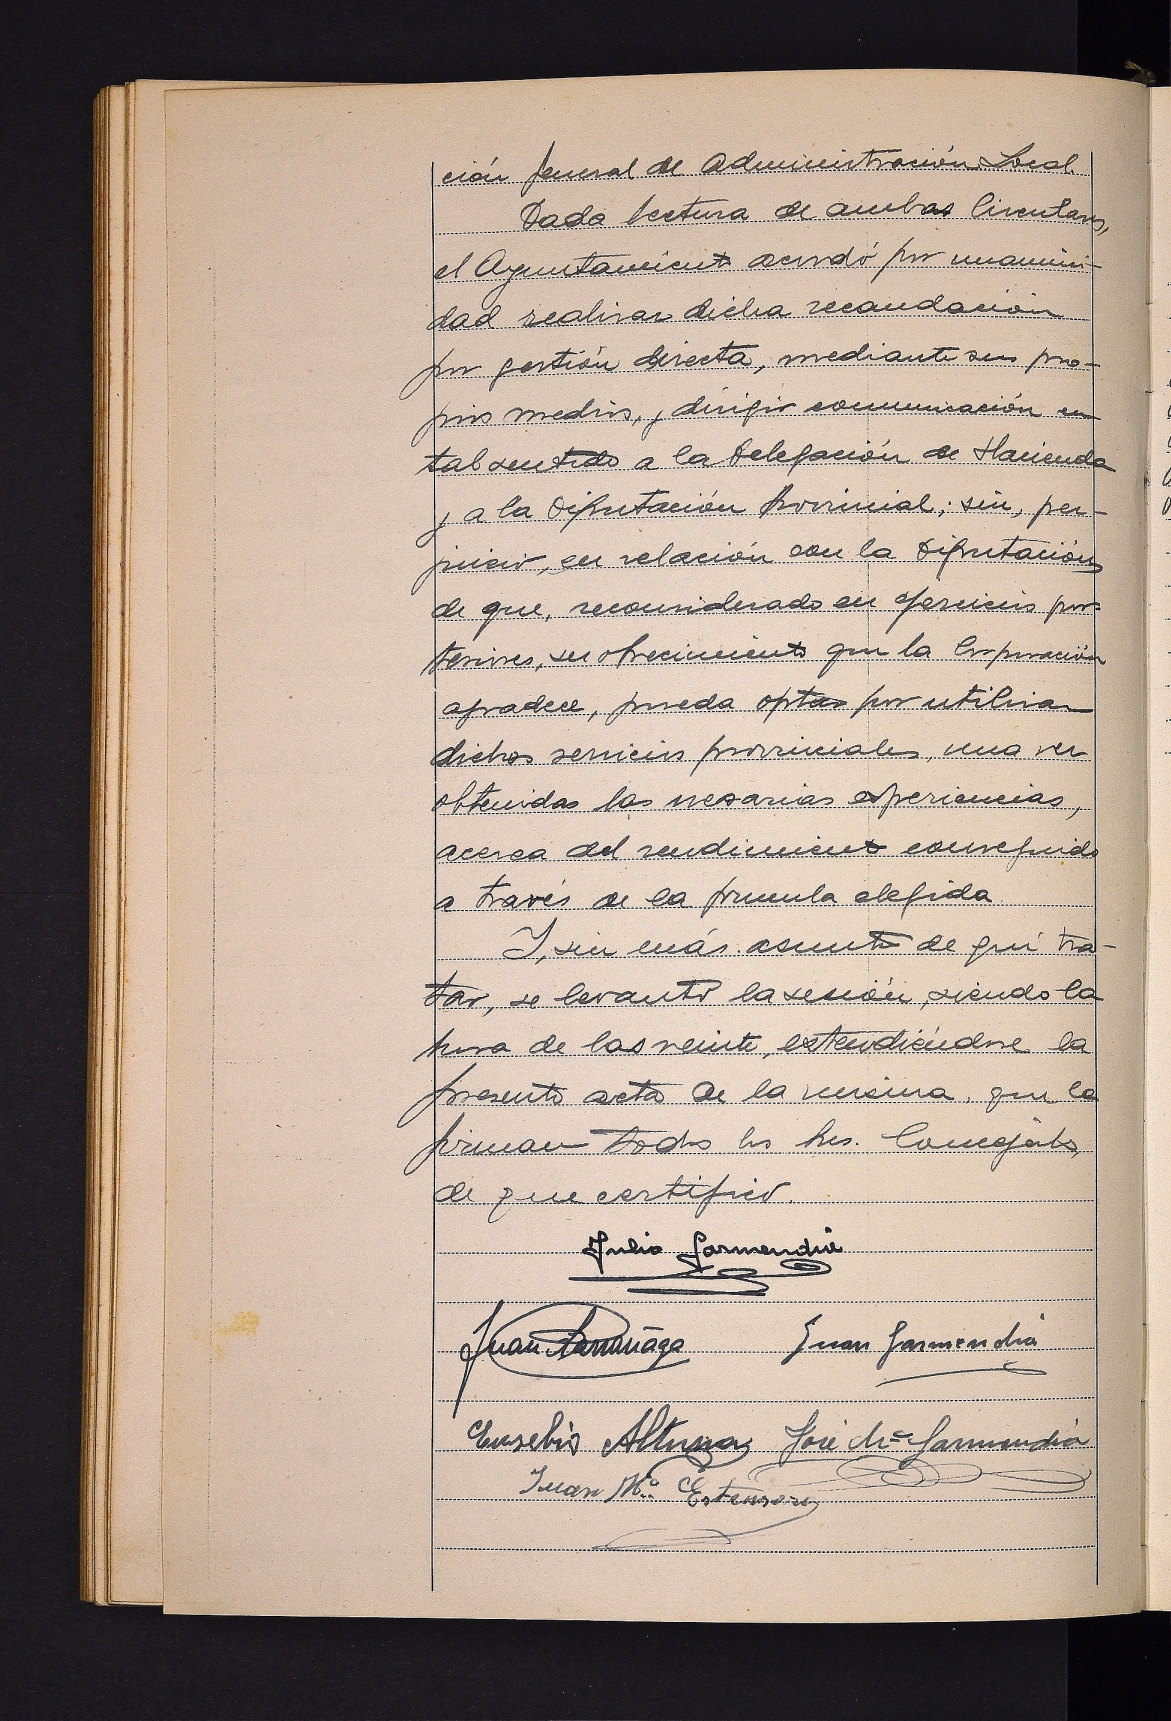 ción general de Administración Local.
Dada lectura de ambas Circulares,
el Ayuntamiento acordó por unanimi-
dad realizar dicha recaudación
por gestión directa, mediante sus pro-
pios medios, y dirigir comunicación en
tal sentido a la Delegación de Hacienda
y a la Diputación Provincial; sin, per-
juicio, en relación con la Diputación
de que, reconsiderado en ejercicios pos-
teriores, su ofrecimiento que la Corporación
agradece, pueda optar por utilizar
dichos servicios provinciales, una vez
obtenidas las necesarias experiencias,
acerca del rendimiento conseguido
a través de la fórmula elegida.
Y, sin más asunto de qué tra-
tar, se levantó la sesión, siendo la
hora de las veinte, extendiéndose la
presente acta de la misma, que la
firman todos los Sres. Concejales,
de que certifico.
Julio Garmendia
Juan Larrañaga Juan Garmendia
Eusebio Altuna José Mª Garmendia
Juan Mª